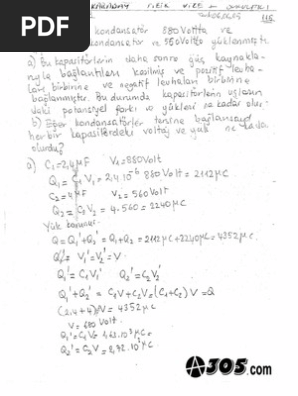 PDF
115
kondansatör 880 Voltta ve
kondansatör 560 Volta yüklenmiştir.
a) Bu kapasitörlerin daha sonra güç kaynakla-
rıyla bağlantıları kesilmiş ve pozitif levha-
ları birbirine ve negatif levhaları birbirine
bağlanmıştır. Bu durumda kapasitörlerin uçların-
daki potansiyel farkı ve yükleri ne kadar olur?
b) Eğer kondansatörler tersine bağlansaydı
herbir kapasitördeki voltaj ve yük ne kadar
olurdu?
a) C₁=2,4μF V₁=880Volt
Q₁ = C₁V₁ = 2,4.10⁻⁶ 880 Volt = 2112μC
C₂=4μF V₂=560Volt
Q₂ = C₂V₂ = 4.560 = 2240μC
Yük korunur:
Q=Q₁'+Q₂' = Q₁+Q₂ = 2112μC+2240μC = 4352μC.
V₁'=V₂'=V
Q₁'=C₁V₁' Q₂'=C₂V₂'
Q₁'+Q₂' = C₁V+C₂V=(C₁+C₂)V=Q
(2.4+4)V = 4352μC
V = 680 Volt.
Q₁'=C₁V=
Q₂'=C₂V=
A305.com